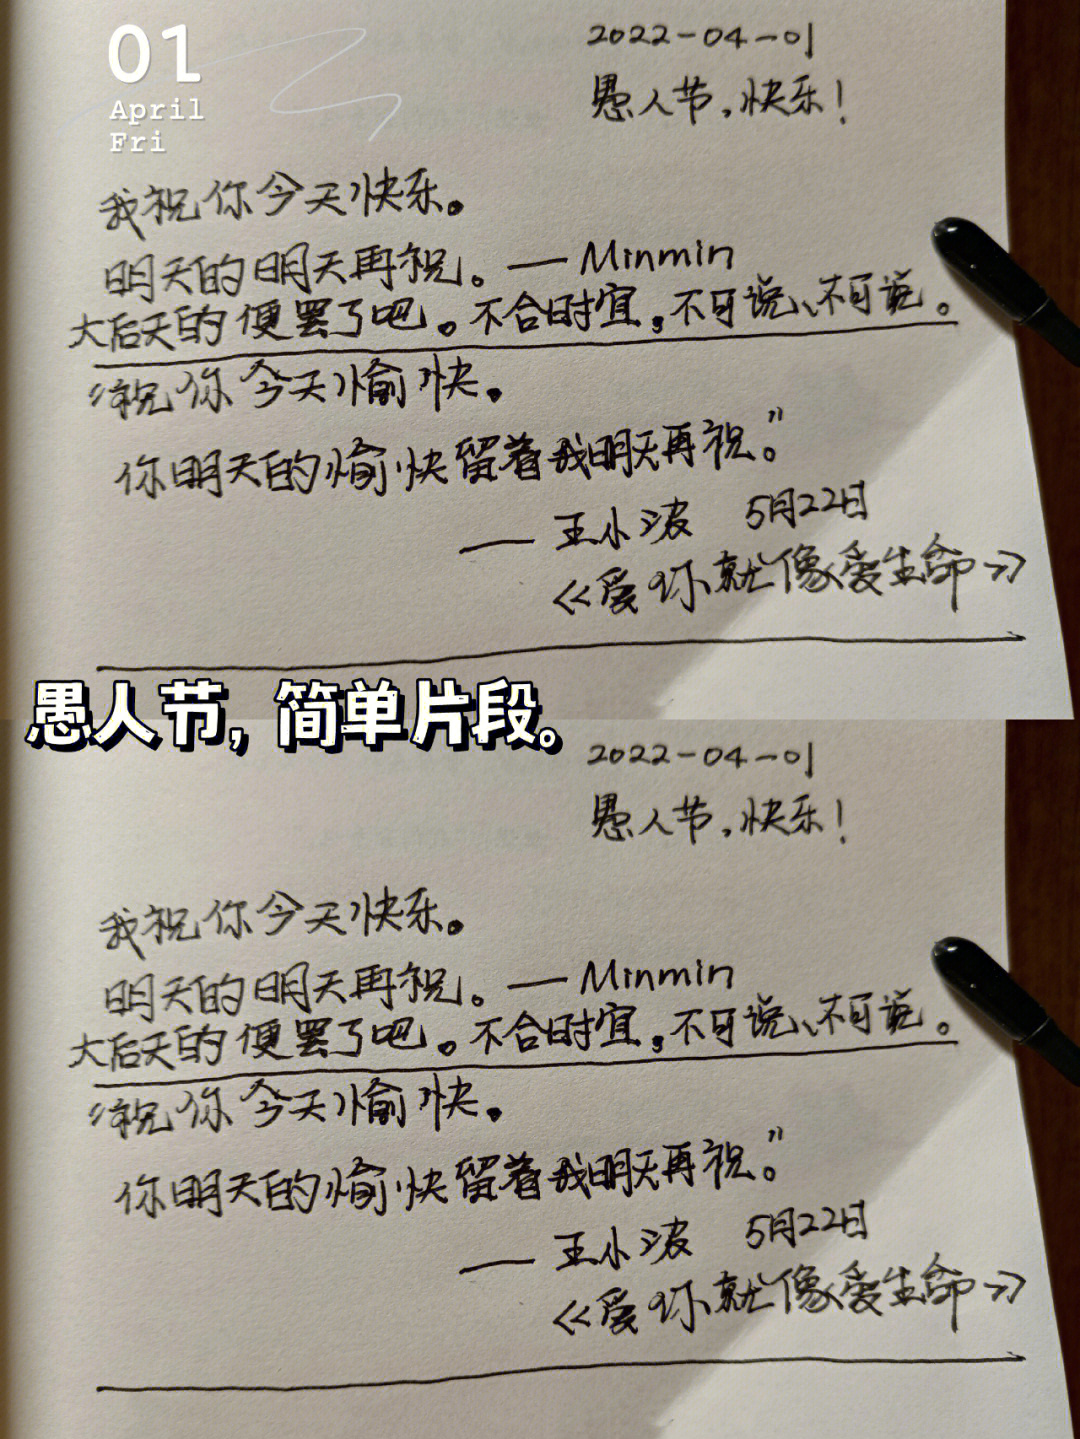 01
April
Fri
2022-04-01
愚人节,快乐!
我祝你今天快乐。
明天的明天再祝。——Minmin
大后天的便罢了吧。不合时宜。不可说、不可说。
“祝你今天愉快。
你明天的愉快留着我明天再祝。”
——王小波 5月22日
《爱你就像爱生命》
愚人节,简单片段。
2022-04-01
愚人节,快乐!
我祝你今天快乐。
明天的明天再祝。——Minmin
大后天的便罢了吧。不合时宜。不可说、不可说。
“祝你今天愉快。
你明天的愉快留着我明天再祝。”
——王小波 5月22日
《爱你就像爱生命》